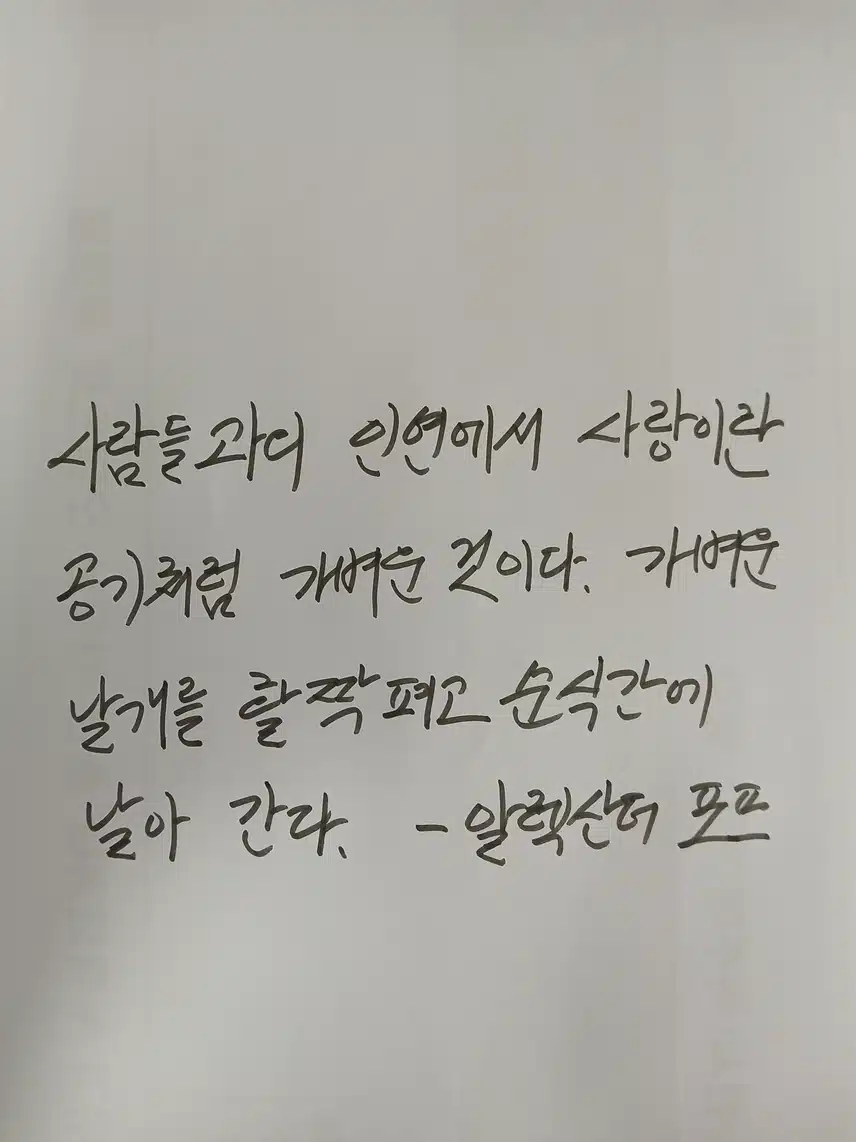 사람들과의 인연에서 사랑이란
공기처럼 가벼운 것이다. 가벼운
날개를 활짝 펴고 순식간에
날아 간다. - 알렉산더 포프